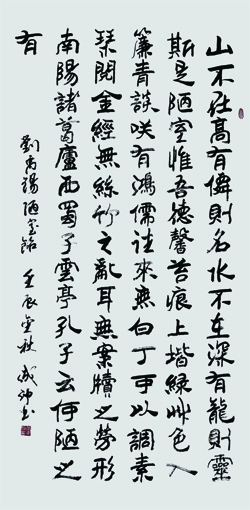 山不在高有僊則名水不在深有龍則靈
斯是陋室惟吾德馨苔痕上堦綠艸色入
簾青談咲有鴻儒往來無白丁可以調素
琹閱金經無絲竹之亂耳無案牘之勞形
南陽諸葛廬西蜀子雲亭孔子云何陋之
有
劉禹錫陋室銘 壬辰金秋